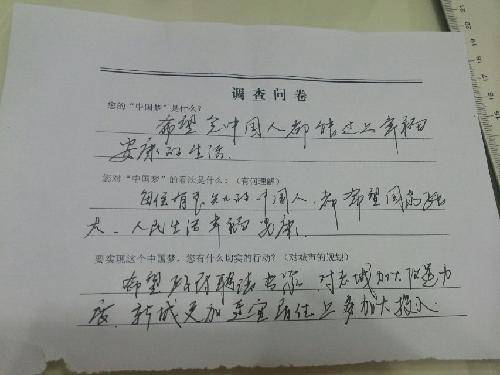 调查问卷
您的“中国梦”是什么？
希望全中国人都能过上幸福
安康的生活。
您对“中国梦”的看法是什么：（有何理解）
每位有 的中国人，都希望国家强
大、人民生活幸福安康。
要实现这个中国梦，您有什么切实的行动？（对城市的规划）
希望政府聘请专家，对老城加大改造力
度，新城更加适宜居住上多加大投入。